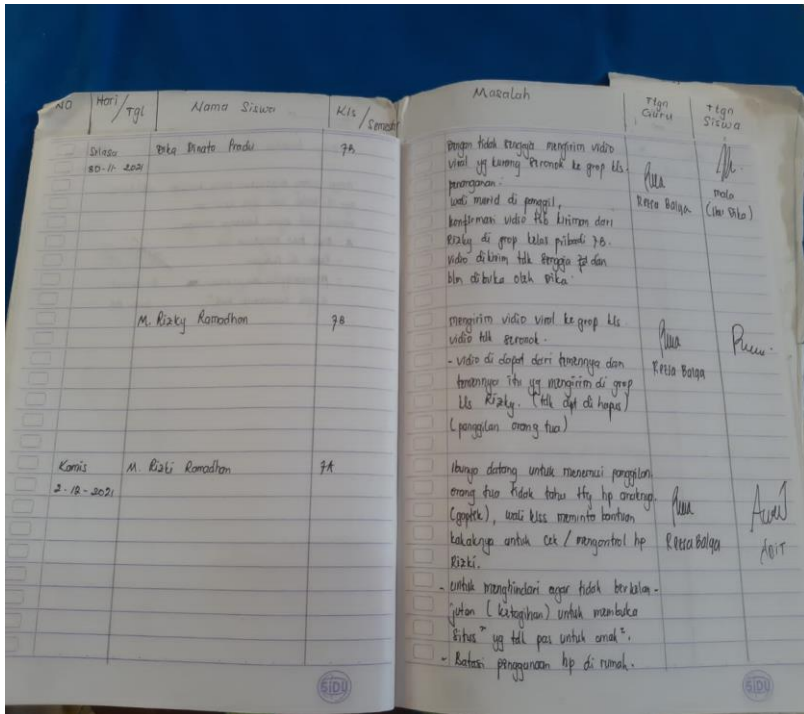 NO
Hari / Tgl
Nama Siswa
Kls / Semester
Masalah
Ttgn Guru
Ttgn Siswa
Selasa
30-11-2021
Dika Dinato Pradu
7B
Dengan tidak sengaja mengirim vidio
viral yg kurang seronok ke grop kls.
penanganan:
wali murid di panggil,
konfirmasi vidio tsb kiriman dari
Rizky di grop kelas pribadi 7B.
vidio dikirim tdk sengaja
dan
blm dibuka oleh Dika.
Retsa Balqa
mala
(ibu Dika)
M. Rizky Ramadhan
7B
mengirim vidio viral ke grop kls.
vidio tdk seronok.
- vidio di dapat dari temennya dan
temennya itu yg mengirim di grop
kls Rizky. (tdk dpt di hapus)
(panggilan orang tua)
Retsa Balqa
Kamis
2-12-2021
M. Rizki Ramadhan
7A
Ibunya datang untuk menemui panggilan
orang tua tidak tahu ttg hp anaknya.
(gaptek), wali klss meminta bantuan
kakaknya untuk cek / mengontrol hp
Rizki.
Retsa Balqa
- untuk menghindari agar tidak berkelan-
jutan (ketagihan) untuk membuka
situs² yg tdk pas untuk anak².
- Batasi penggunaan hp di rumah.
SIDU
SIDU